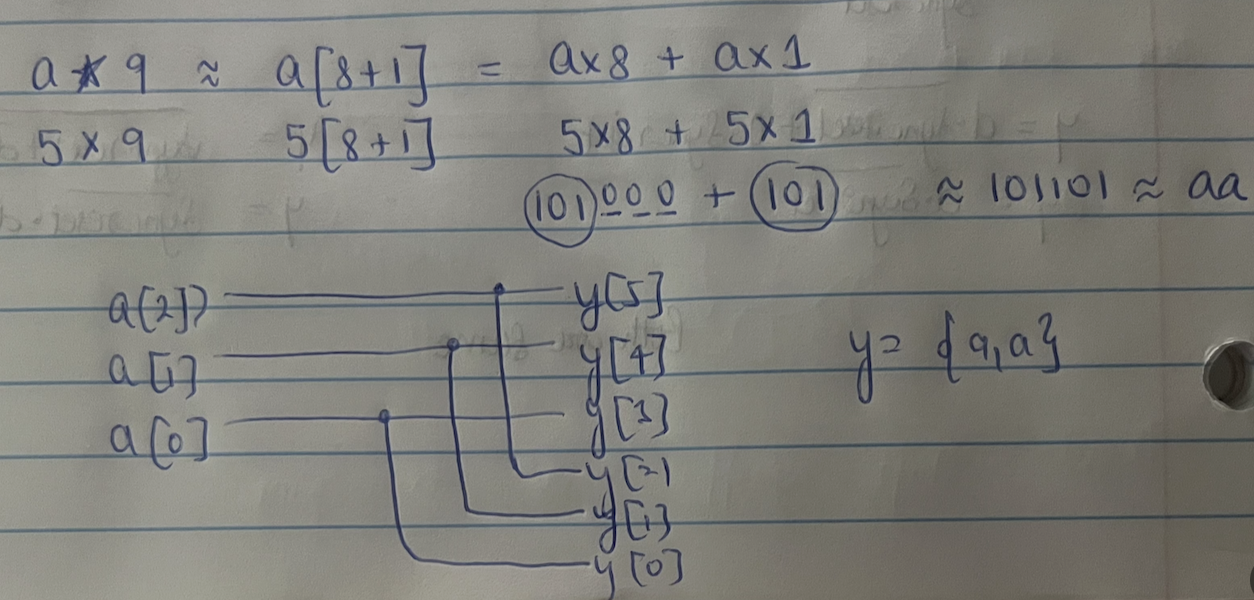 a * 9 ≈ a[8+1] = a×8 + a×1
5 × 9 5[8+1] 5×8 + 5×1
101000 + 101 ≈ 101101 ≈ aa
a[2] y[5]
a[1] y[4] y = {a,a}
a[0] y[3]
y[2]
y[1]
y[0]